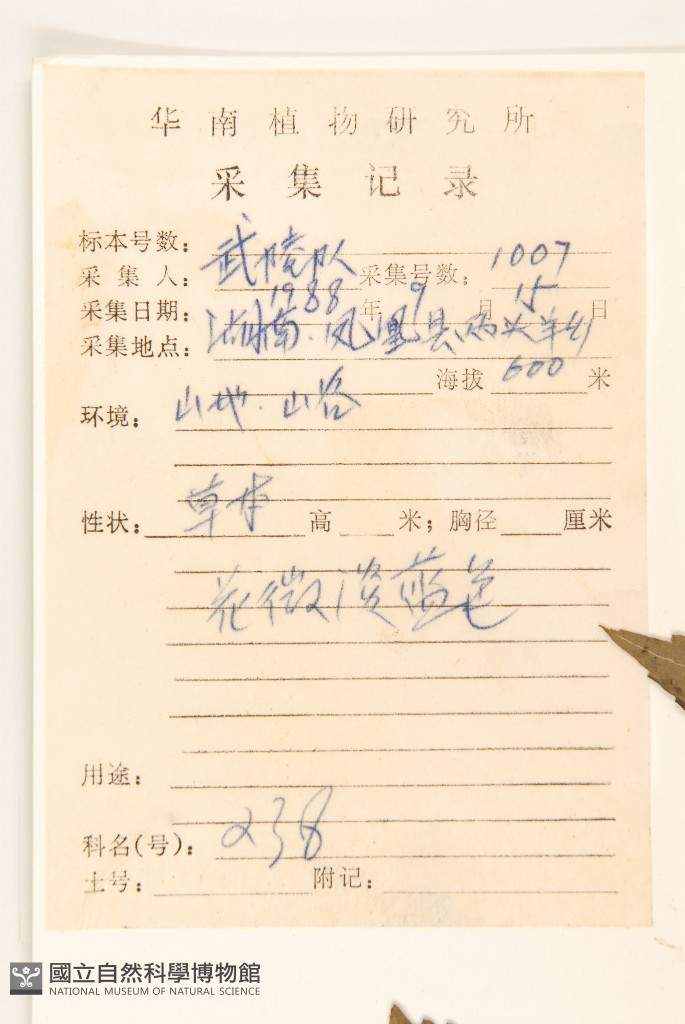 华南植物研究所
采集记录
标本号数：
采集人：武陵队 采集号数：1007
采集日期：1988年9月15日
采集地点：湖南.凤凰县.两头羊
海拔 600 米
环境：山地.山谷
性状：草本 高 米；胸径 厘米
花微淡蓝色
用途：
科名(号)：238
土号： 附记：
國立自然科學博物館
NATIONAL MUSEUM OF NATURAL SCIENCE